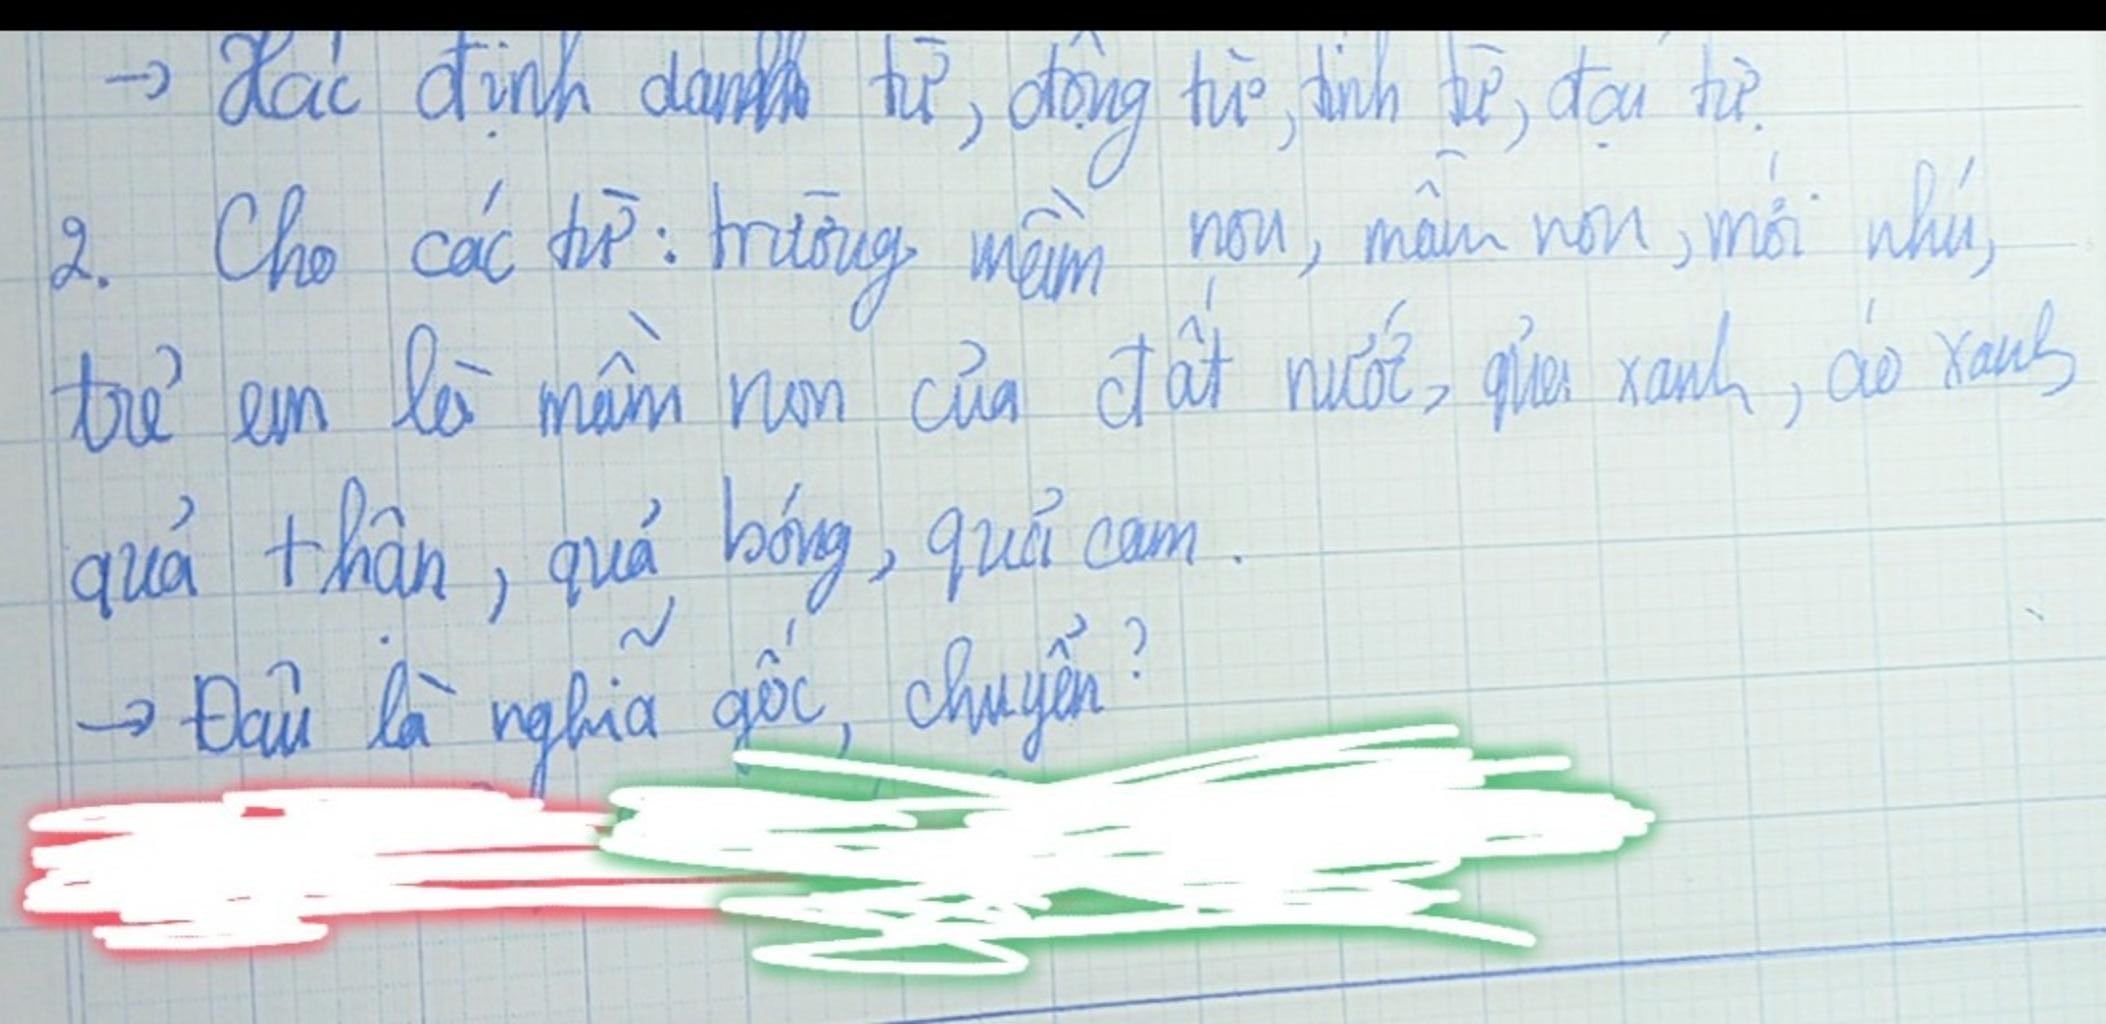 → Xác định danh từ, động từ, tính từ, đại từ.
2. Cho các từ: trường mầm non, mầm non, mới nhú,
trẻ em là mầm non của đất nước, quả xanh, áo xanh
quả thận, quả bóng, quả cam.
→ Đâu là nghĩa gốc, chuyển?